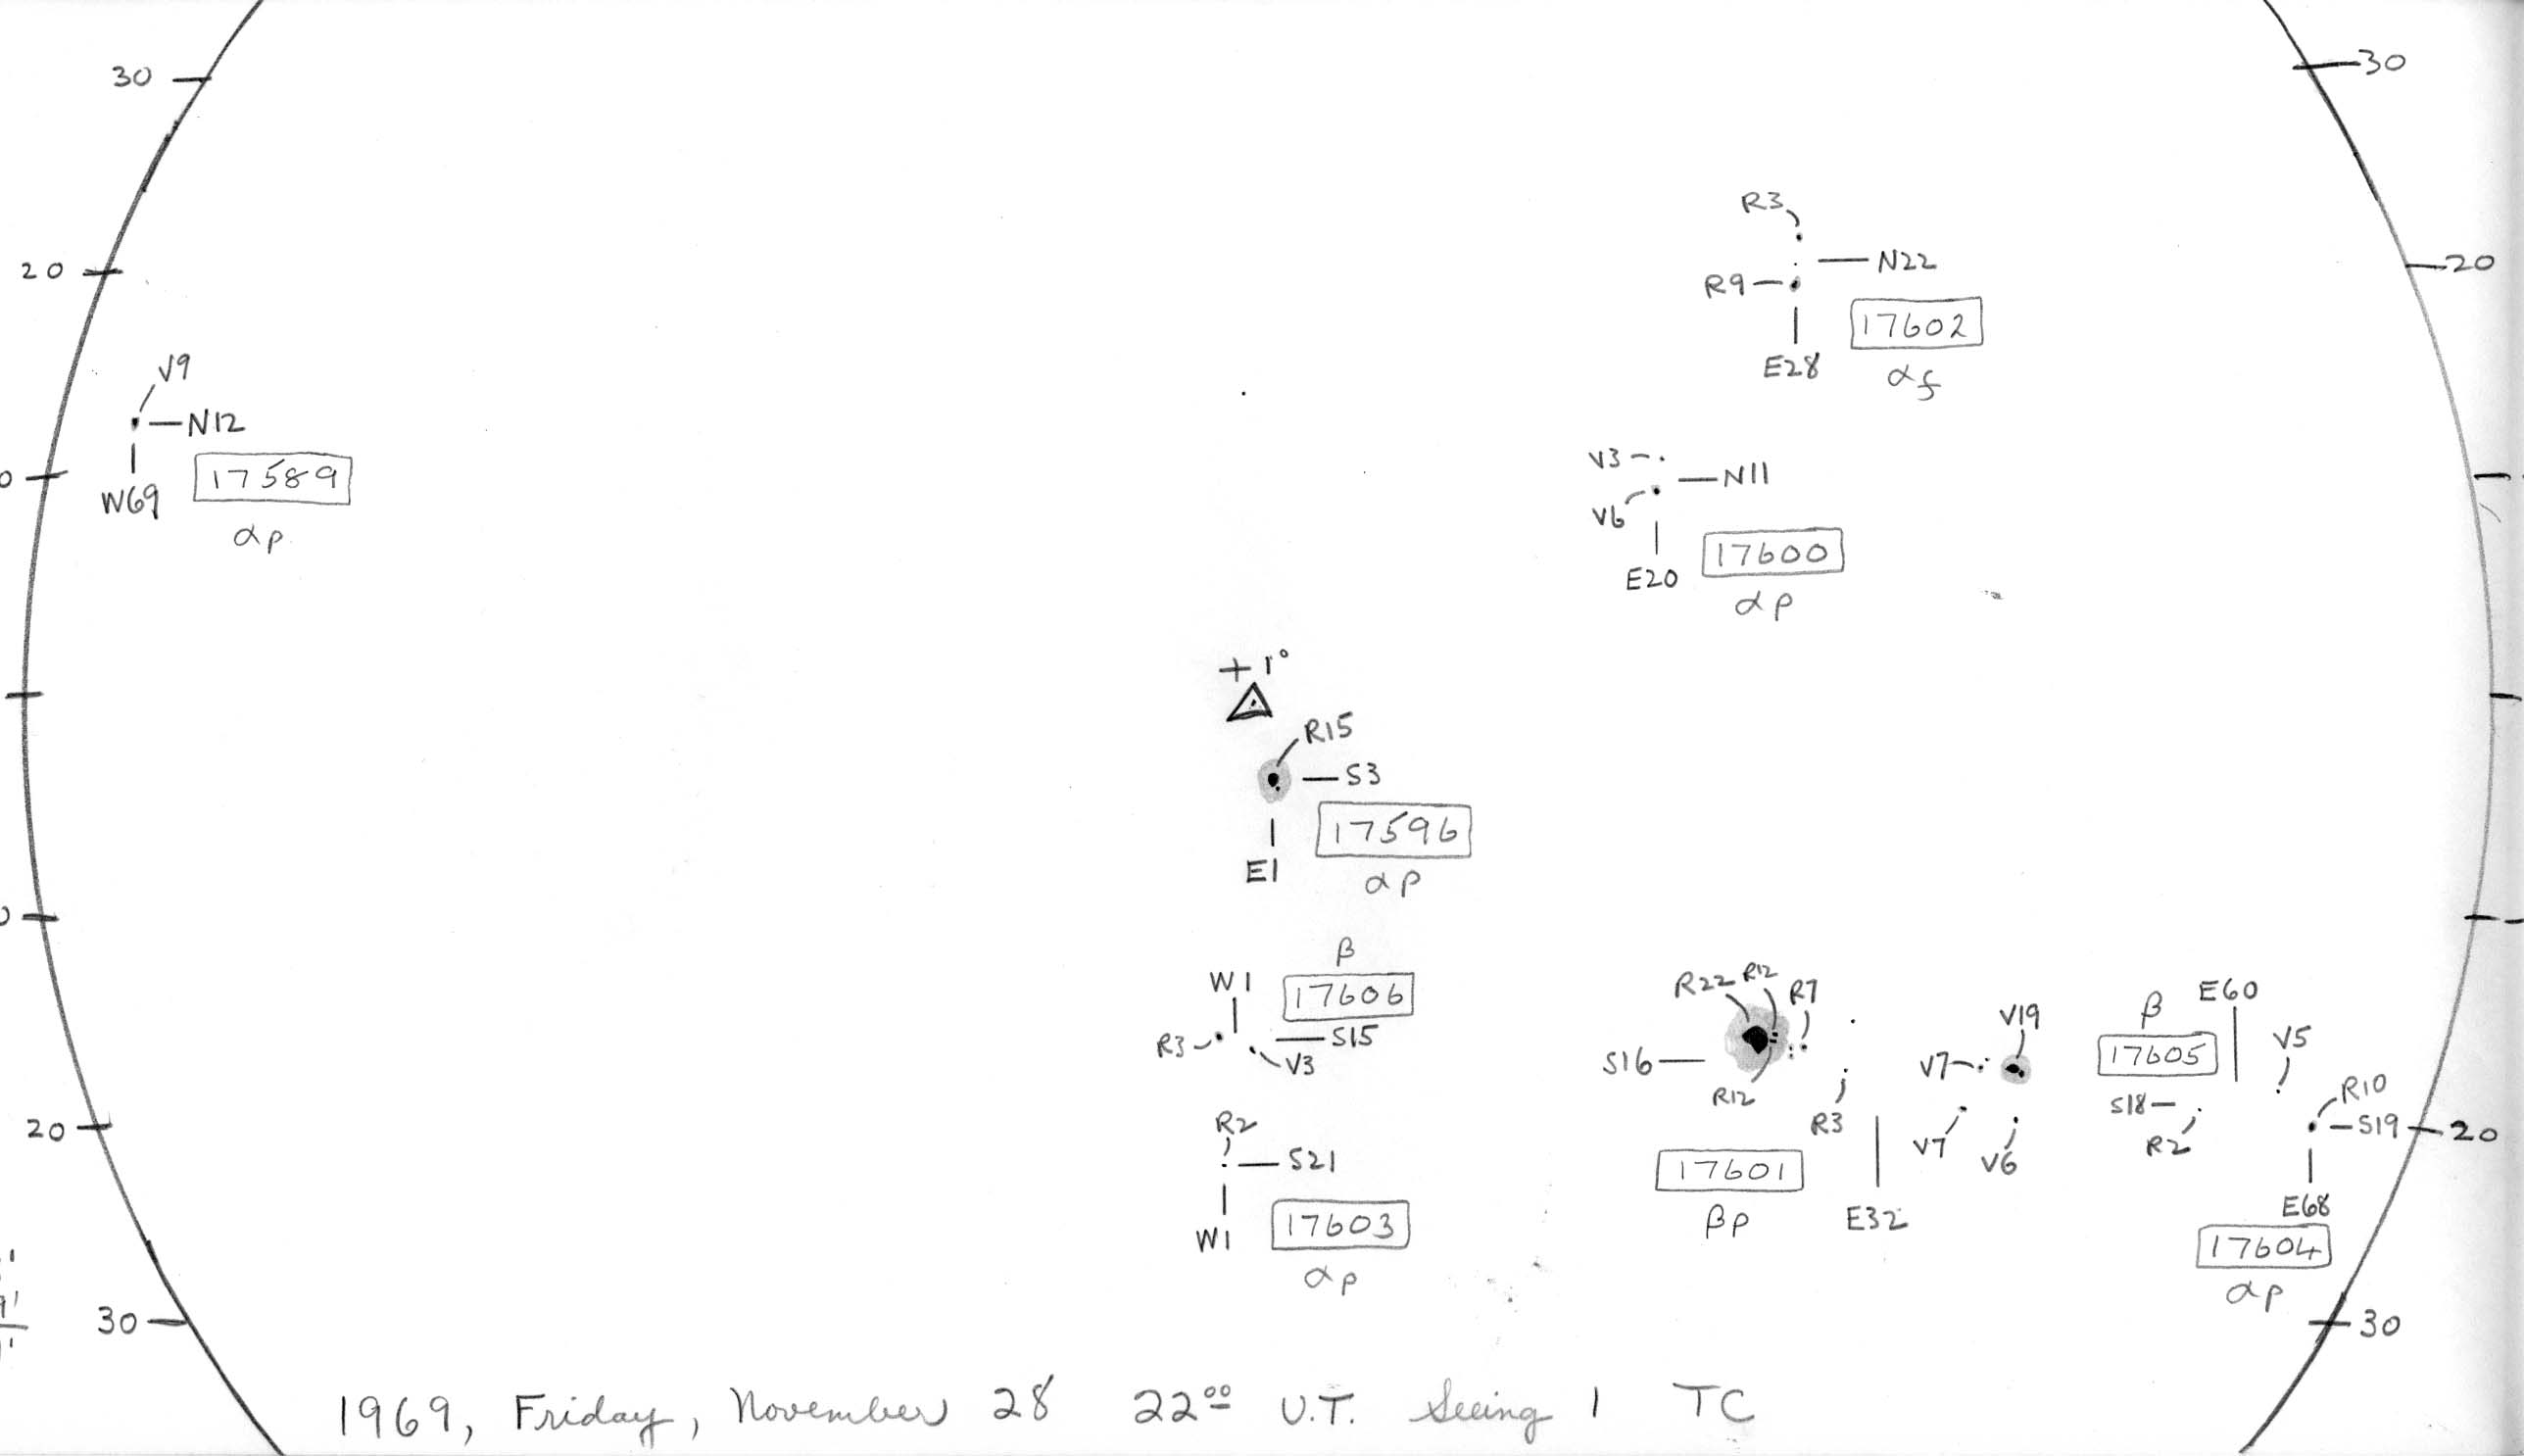 30
30
20
20
R3
N22
R9
17602
E28
αf
V9
N12
17589
W69
αp
V3
N11
V6
17600
E20
αp
+1°
R15
S3
17596
E1
αp
β
W1
17606
R3
S15
V3
R2
S21
W1
17603
αp
R22 R12 R7
S16
R12
R3
17601
βp
E32
V19
V7
V7
V6
β
E60
17605
V5
S18
R2
R10
S19
E68
17604
αp
20
20
30
30
1969, Friday, November 28 22ºº U.T. Seeing 1 TC